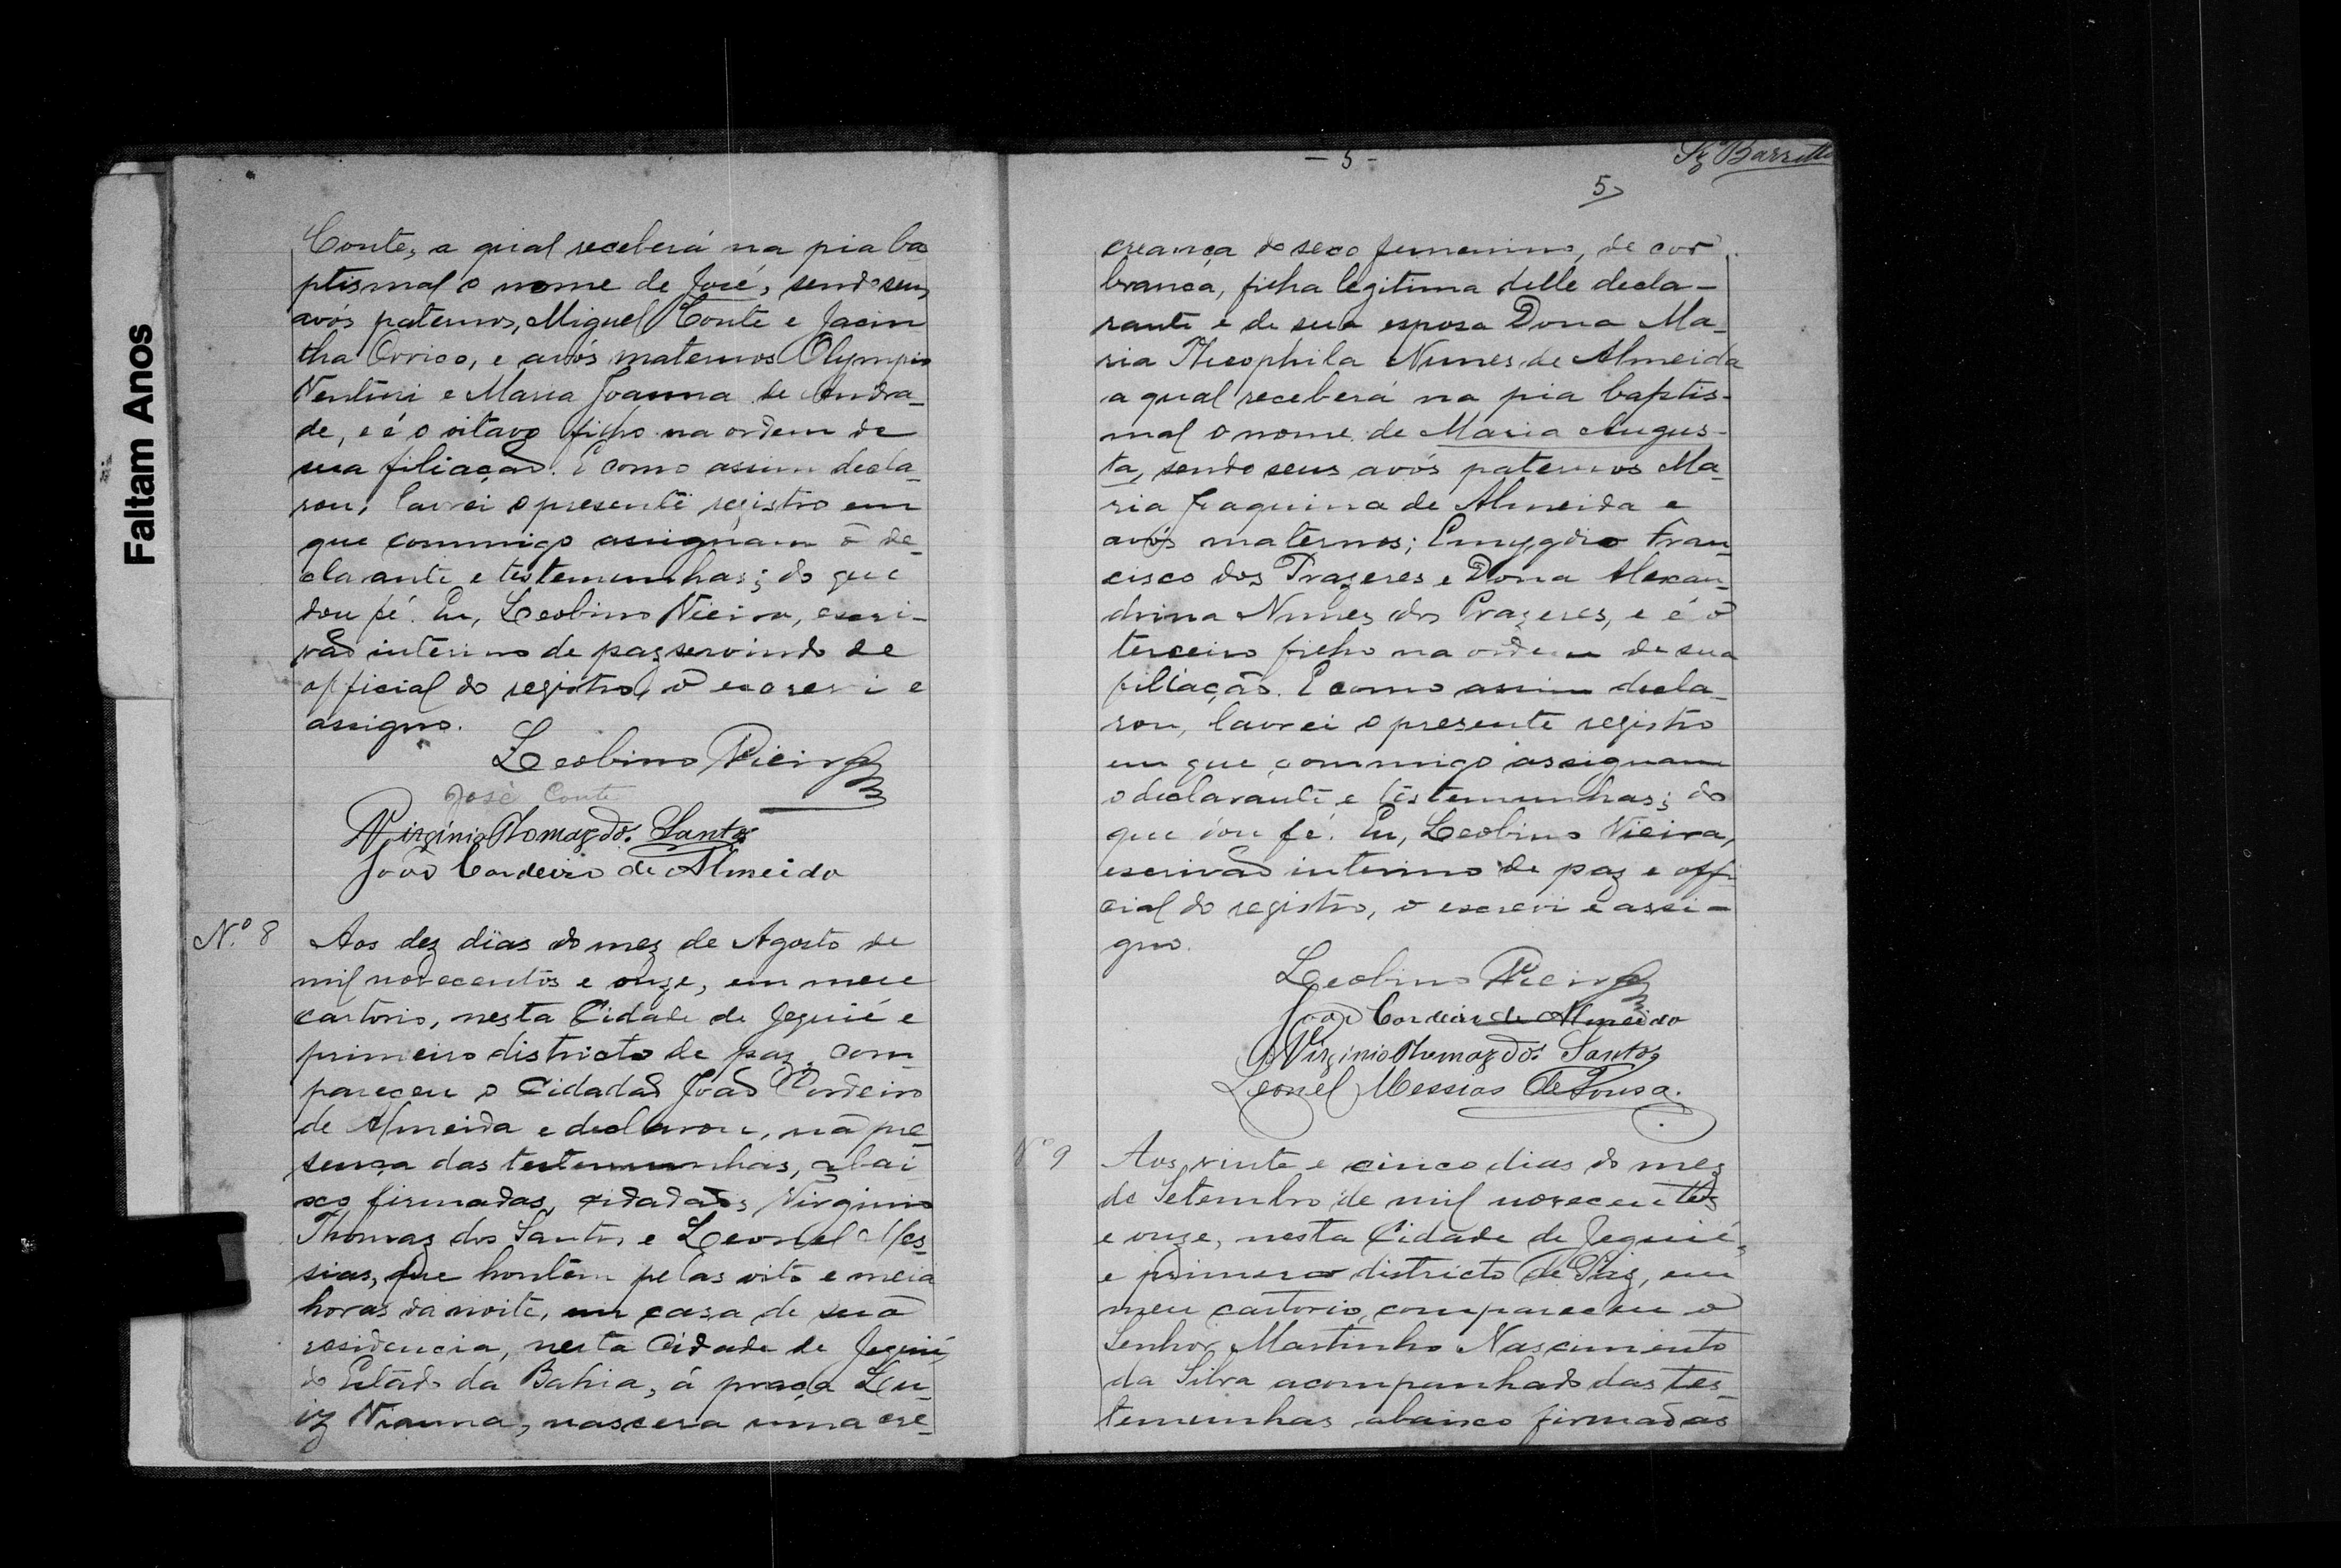 Faltam Anos
Conte, a qual receberá na pia ba
ptismal o nome de José, sendo seus
avós paternos, Miguel Conte e Jacin
tha Orrico, e avós maternos Olympio
Ventini e Maria Joanna de Andra-
de, e é o oitavo filho na ordem de
sua filiação. E como assim decla-
rou, lavrei o presente registro em
que commigo assignam o de-
clarante e testemunhas; do que
dou fé. Eu, Leobino Vieira, escri-
vão interino de paz servindo de
official do registro, o escrevi e
assigno.
Leobino Vieira
José Conte
Virginio Thomaz dos Santos
João Cordeiro de Almeida
N.º 8
Aos dez dias do mez de Agosto de
mil novecentos e onze, em meu
cartorio, nesta Cidade de Jequié e
primeiro districto de paz, com-
pareceu o Cidadão João Cordeiro
de Almeida e declarou, na pre-
sença das testemunhas, abai
xo firmadas, cidadãos Virginio
Thomaz dos Santos e Leonel Mes-
sias, que hontem pelas oito e meia
horas da noite, em casa de sua
residencia, nesta Cidade de Jequié,
do Estado da Bahia, á praça Lu-
iz Vianna, nascera uma cre-
- 5 -
Barretto
5
creança do sexo femenino, de cor
branca, filha legitima delle decla-
rante e de sua esposa Dona Ma-
ria Theophila Nunes de Almeida
a qual receberá na pia baptis-
mal o nome de Maria Augus-
ta, sendo seus avós paternos Ma-
ria Joaquina de Almeida e
avós maternos; Emygdio Fran-
cisco dos Prazeres e Dona Alexan-
drina Nunes dos Prazeres, e é o
terceiro filho na ordem de sua
filiação. E como assim decla-
rou, lavrei o presente registro
em que commigo assignam
o declarante e testemunhas; do
que dou fé. Eu, Leobino Vieira,
escrivão interino de paz e offi
cial do registro, o escrevi e assi-
gno.
Leobino Vieira
João Cordeiro de Almeida
Virginio Thomaz dos Santos
Leonel Messias de Sousa.
Nº 9
Aos vinte e cinco dias do mez
de Setembro de mil novecentos
e onze, nesta Cidade de Jequié,
e primeiro districto de Paz, em
meu cartorio, compareceu o
Senhor Martinho Nascimento
da Silva acompanhado das tes-
temunhas abaixo firmadas